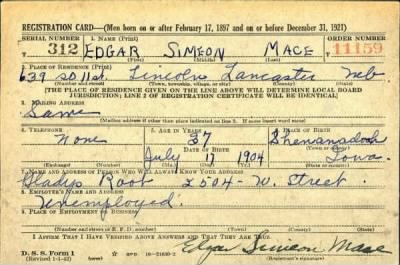 REGISTRATION CARD—(Men born on or after February 17, 1897 and on or before December 31, 1921)
SERIAL NUMBER 1. NAME (Print) ORDER NUMBER
312 EDGAR SIMEON MACE 11159
(First) (Middle) (Last)
2. PLACE OF RESIDENCE (Print)
639 SO 11st. Lincoln Lancaster Neb
(Number and street) (Town, township, village, or city) (County) (State)
[THE PLACE OF RESIDENCE GIVEN ON THE LINE ABOVE WILL DETERMINE LOCAL BOARD
JURISDICTION; LINE 2 OF REGISTRATION CERTIFICATE WILL BE IDENTICAL]
3. MAILING ADDRESS
Same
[Mailing address if other than place indicated on line 2. If same insert word same]
4. TELEPHONE 5. AGE IN YEARS 6. PLACE OF BIRTH
None 37 Shenandoah
DATE OF BIRTH
July 17 1904 Iowa
(Exchange) (Number) (Mo.) (Day) (Yr.) (State or country)
7. NAME AND ADDRESS OF PERSON WHO WILL ALWAYS KNOW YOUR ADDRESS
Gladys Root 2504- W. Street
8. EMPLOYER'S NAME AND ADDRESS
Unemployed
9. PLACE OF EMPLOYMENT OR BUSINESS
(Number and street or R. F. D. number) (Town) (County) (State)
I AFFIRM THAT I HAVE VERIFIED ABOVE ANSWERS AND THAT THEY ARE TRUE.
D. S. S. Form 1
(Revised 1-1-42) (over) GPO 16-21630-2 Edgar Simeon Mace